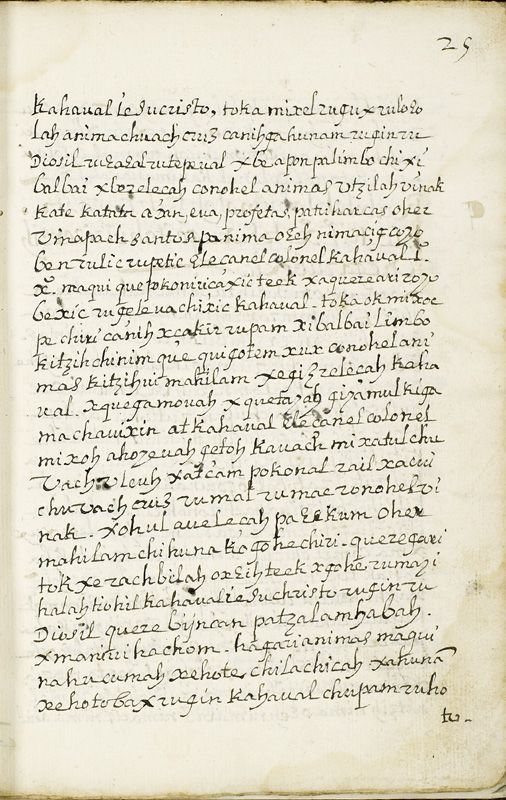 25
Kahaual ie Sucristo, toka mixel rugux ruloqo
lah anima chuach cruz canihga hunam rugin ru
Diosil ruqaqal rutepeual xbe apon pa limbo chi xi
balbai xbozelecah conohel animas vtzilah vinak
kate katata aDan, eua, profetas, patiharcas oher
vinapach santos panima oqeh nimacigcozo
ben rulic rupetic Elecanel colonel kahaual I.
X. maqui que pokoniricaxic teek xaquezeari rozo
bexic rugeleuachixic kahaual. toka ok mixoc
pe chiri canih xcakir rupam xibalbai Limbo
kitzih chinim que quigotem xux conohel ani
mas kitzihui mahilam xegizzelecah kaha
ual. xquegamouah xquetazah giyamul kiga
ma chauixin at kahaual Elecanel colonel
mixoh ahozeuah getoh kauach mixatul chu
uach vleuh xatcam pokonal rail xacui
chuuach cruz rumal rumac ronohel vi
nak. Xohul auelecah pa Eekum Oher
mahilam chi huna kagohe chiri. queregari
tok xerachbilah oxqih teek xgohe rumazi
halah tiohil kahaual ie Suchristo rugin ru
Diosil quere biincan patzalamhabah.
xmanuihachom. hagari animas maqui
nahucumah xehote chila chicah xahunā
xehotobax rugin kahaual chupam ruho
tu-